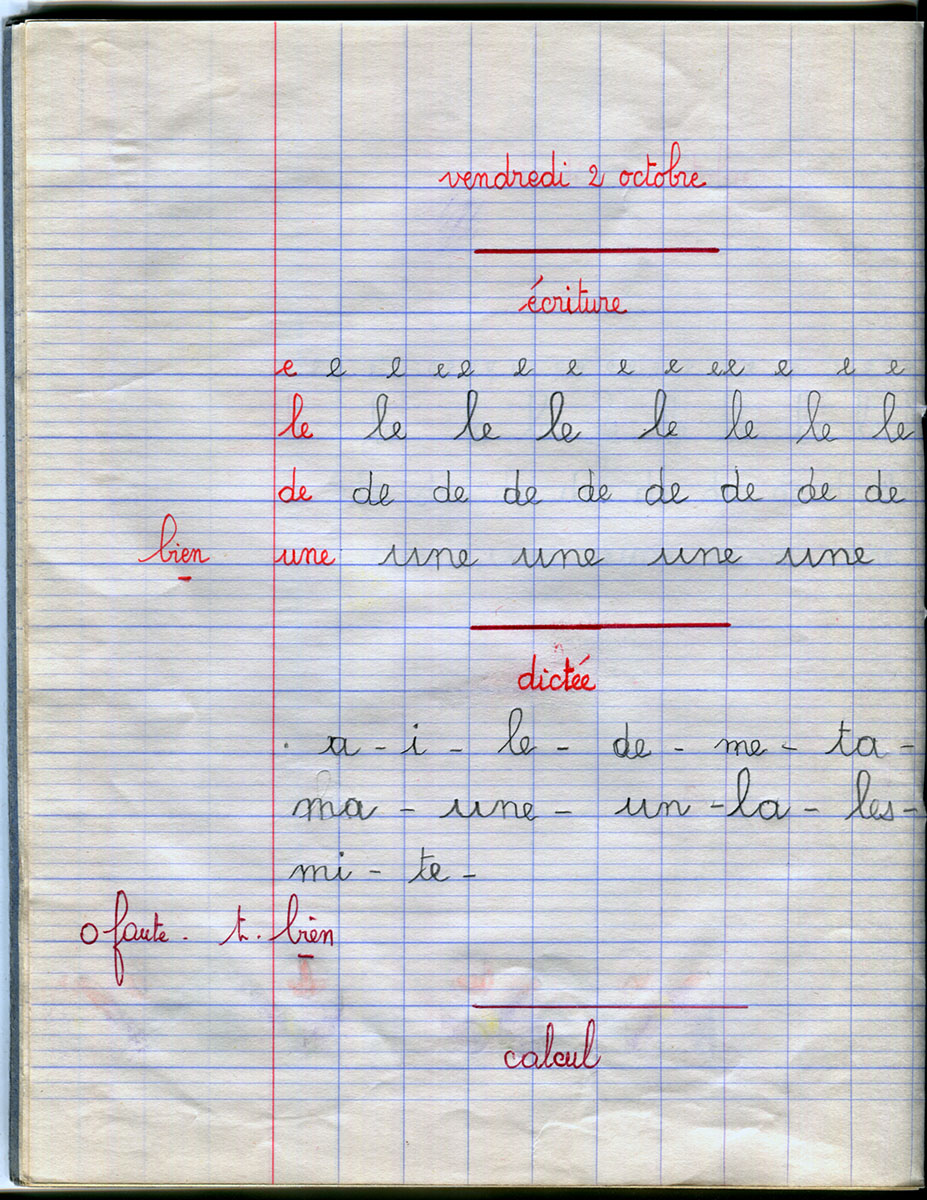 vendredi 2 octobre
écriture
e e e e e e e e e ee e e e
le le le le le le le le
de de de de de de de de de
bien une une une une une
dictée
a - i - le - de - me - ta -
ma - une - un - la - les -
mi - te -
0 faute. t. bien
calcul